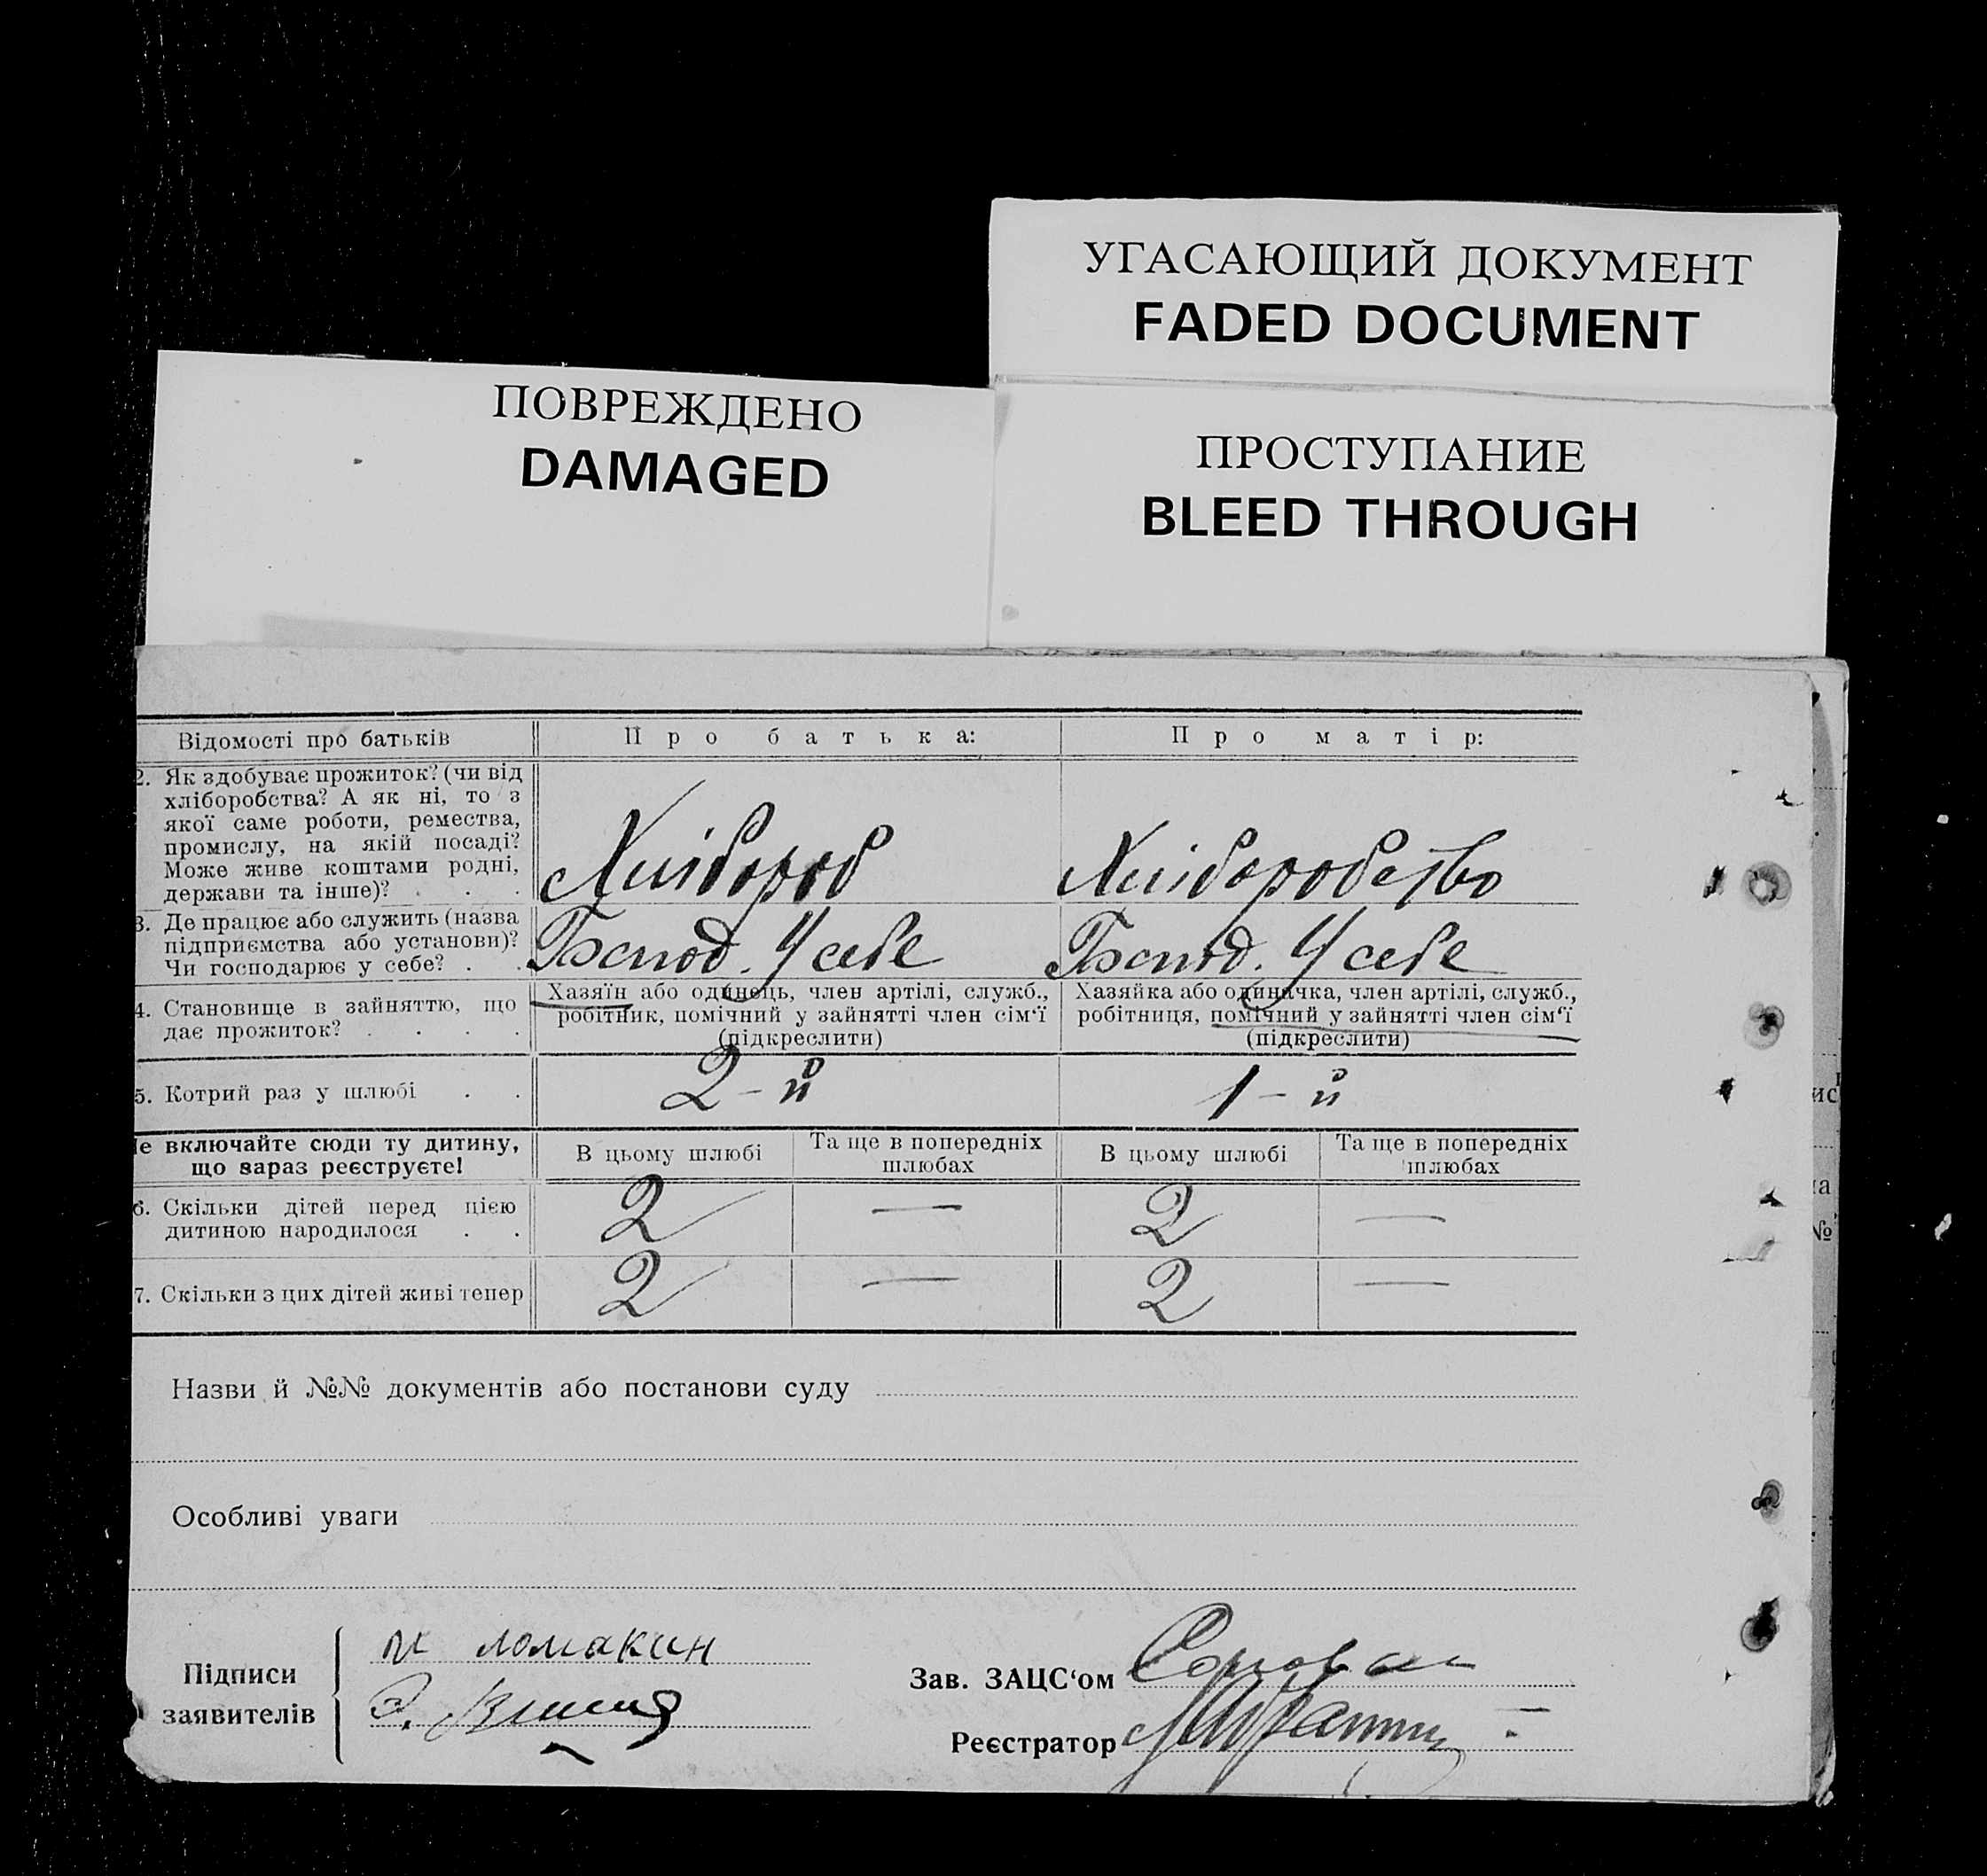 УГАСАЮЩИЙ ДОКУМЕНТ
FADED DOCUMENT
ПОВРЕЖДЕНО
DAMAGED
ПРОСТУПАНИЕ
BLEED THROUGH
Відомості про батьків
Про батька:
Про матір:
2. Як здобуває прожиток? (чи від
хліборобства? А як ні, то з
якої саме роботи, ремества,
промислу, на якій посаді?
Може живе коштами родні,
держави та інше)? . . .
Хлібороб
Хліборобство
3. Де працює або служить (назва
підприємства або установи)?
Чи господарює у себе? . .
Господ. У себе
Господ. У себе
4. Становище в зайняттю, що
дає прожиток? . . . .
Хазяїн або одинець, член артілі, служб.,
робітник, помічний у зайнятті член сім‘ї
(підкреслити)
Хазяйка або одиначка, член артілі, служб.,
робітниця, помічний у зайнятті член сім‘ї
(підкреслити)
5. Котрий раз у шлюбі . .
2-й
1-й
е включайте сюди ту дитину,
що зараз реєструєте!
В цьому шлюбі
Та ще в попередніх
шлюбах
В цьому шлюбі
Та ще в попередніх
шлюбах
6. Скільки дітей перед цією
дитиною народилося . .
2 — 2 —
7. Скільки з цих дітей живі тепер
2 — 2 —
Назви й №№ документів або постанови суду
Особливі уваги
Підписи
заявителів
ломакин
Зав. ЗАЦС‘ом
Реєстратор
ис
на
№